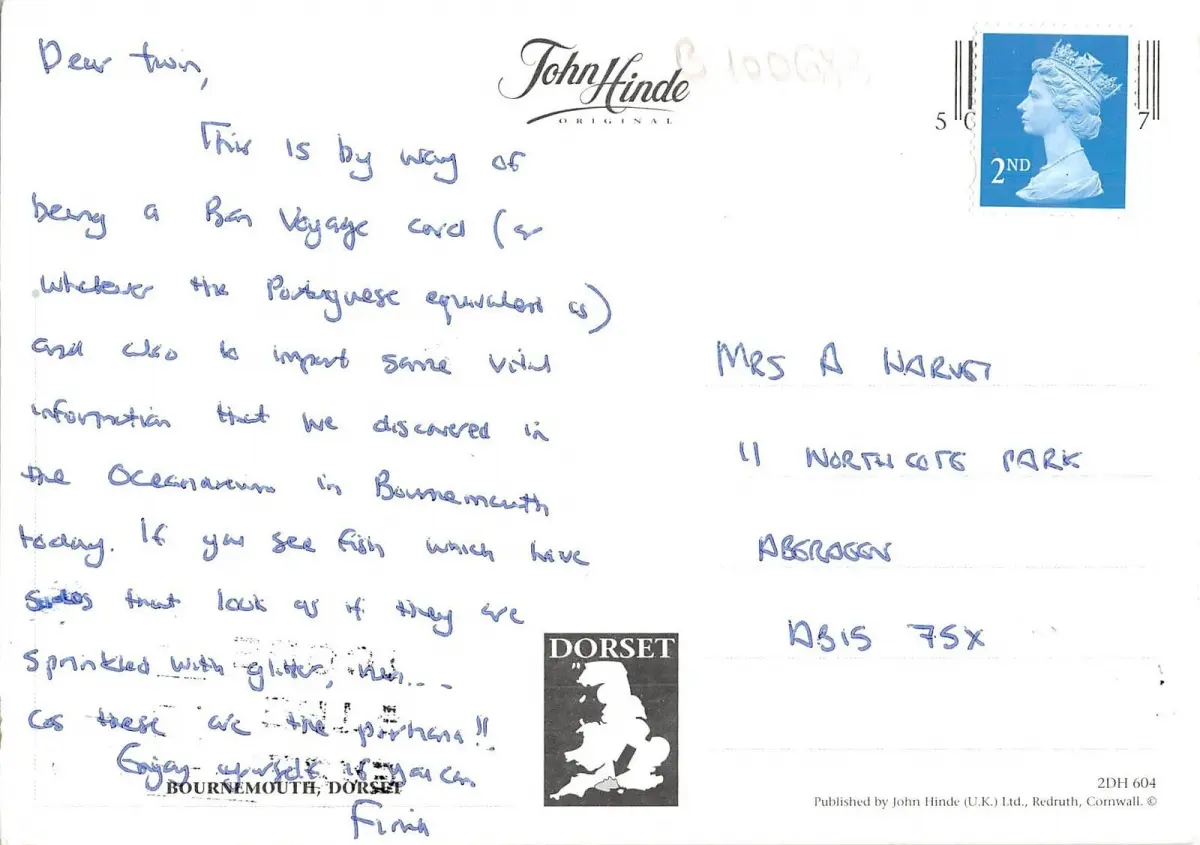 Dear twin,
This is by way of
being a Bon Voyage card (or
whatever the Portuguese equivalent is)
and also to impart some vital
information that we discovered in
the Oceanarium in Bournemouth
today. If you see fish which have
sides that look as if they are
sprinkled with glitter,
cos these are the pirhana!!
Enjoy yourself if you can
Fiona
BOURNEMOUTH, DORSET
John Hinde
ORIGINAL
DORSET
5 0 7
2ND
MRS A HARVEY
11 NORTHCOTE PARK
ABERDEEN
AB15 7SX
2DH 604
Published by John Hinde (U.K.) Ltd., Redruth, Cornwall. ©